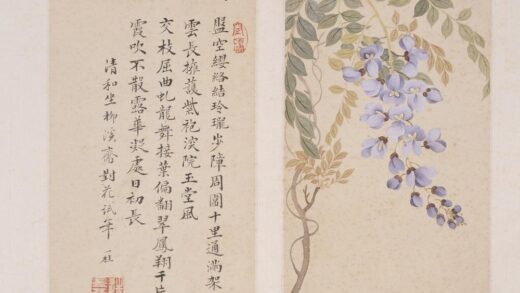 盤空纓絡結玲瓏步障周圍十里通滿架
雲長擁護紫袍深院玉堂風
交枝屈曲虬龍舞接葉偏翻翠鳳翔千
霞吹不散露華凝處日初長
清和坐柳溪齋對花試筆 一桂